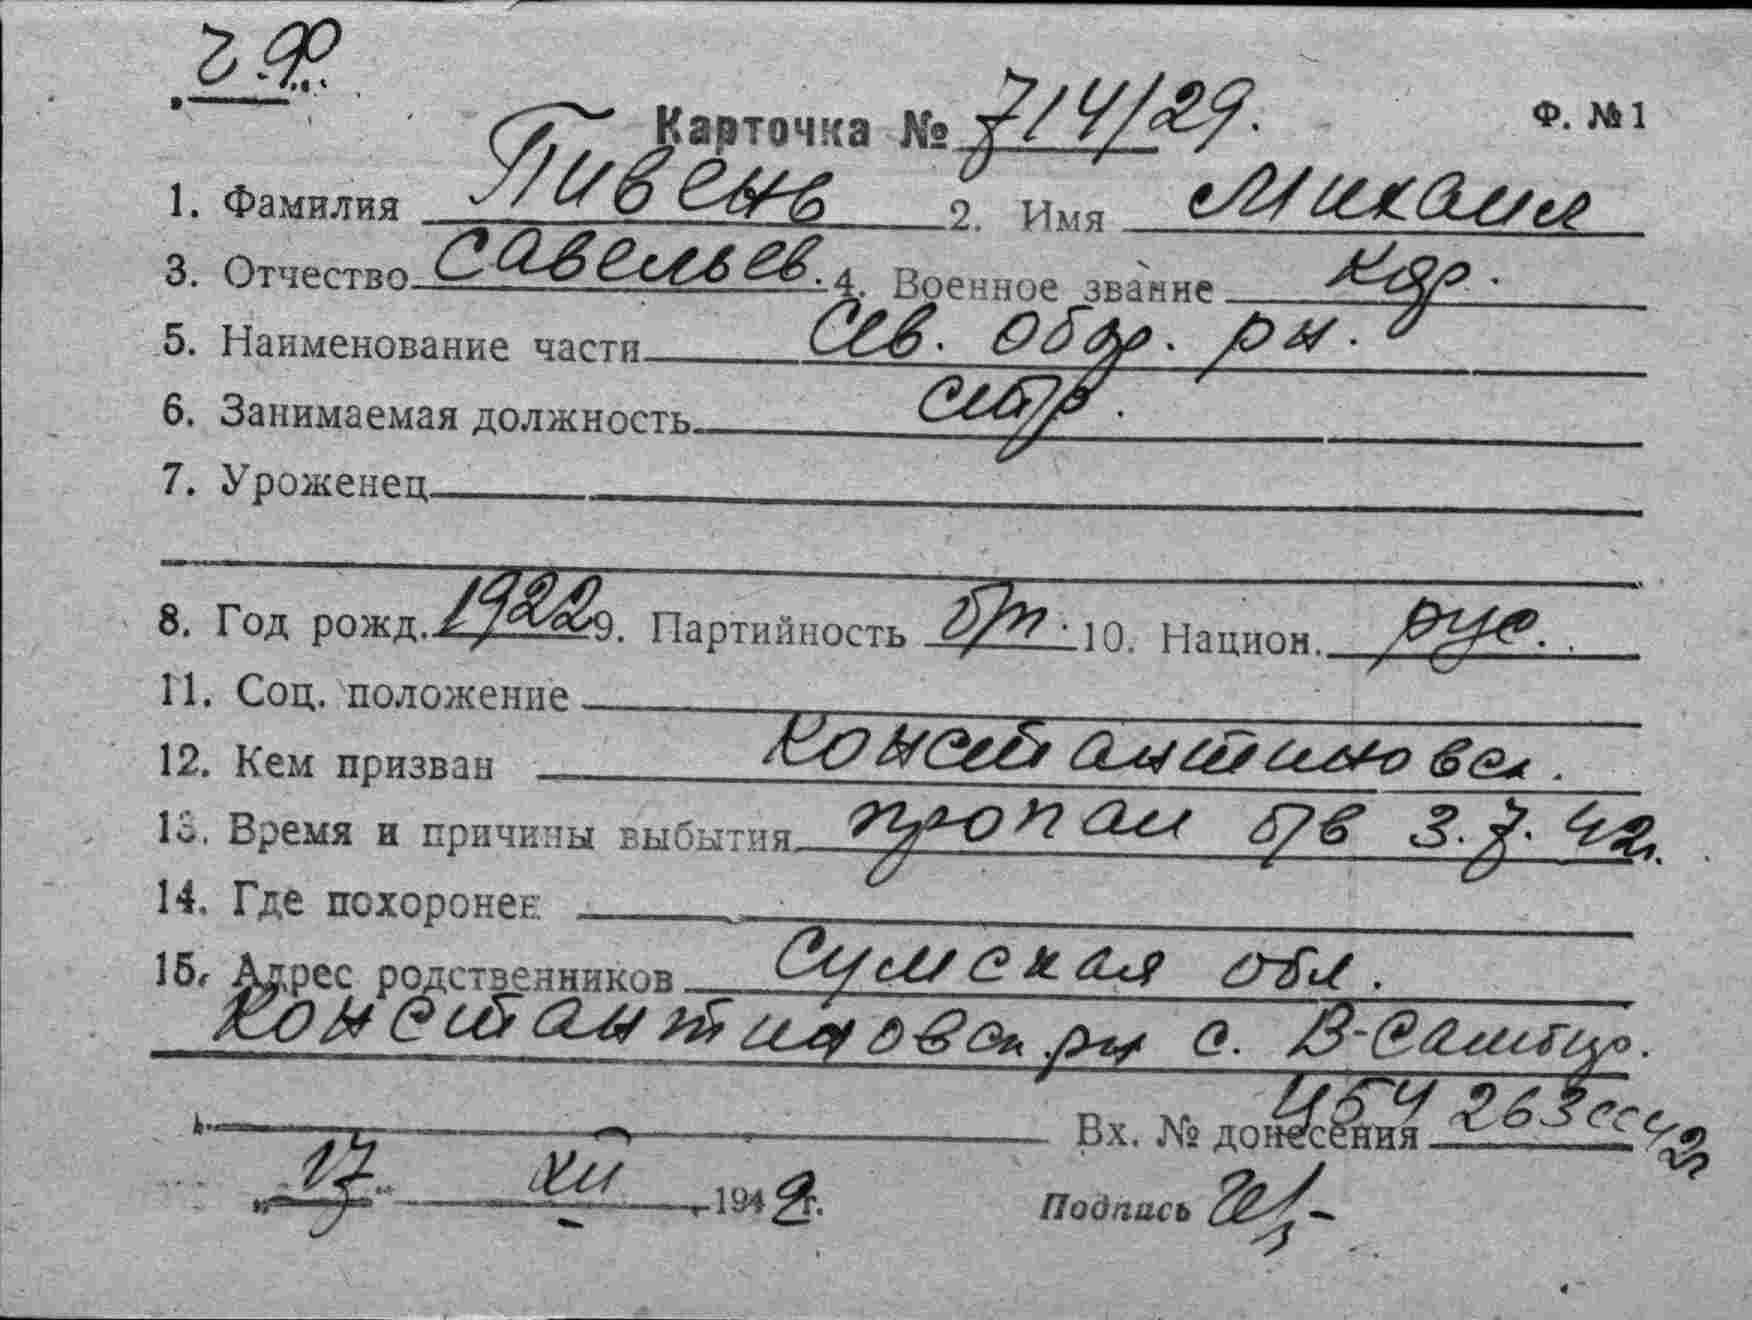 Ч.Ф.
Карточка № 714/29. Ф. №1
1. Фамилия Пивень 2. Имя Михаил
3. Отчество Савельев. 4. Военное звание кр.
5. Наименование части Сев. обор. рн.
6. Занимаемая должность стр.
7. Уроженец
8. Год рожд. 1922 9. Партийность б/п. 10. Национ. рус.
11. Соц. положение
12. Кем призван Константиновск.
13. Время и причины выбытия пропал б/в 3.7.42г.
14. Где похоронен
15. Адрес родственников Сумская обл.
Константиновск. рн с.
Вх. № донесения 263сс42г
„17“ XII 1942г. Подпись